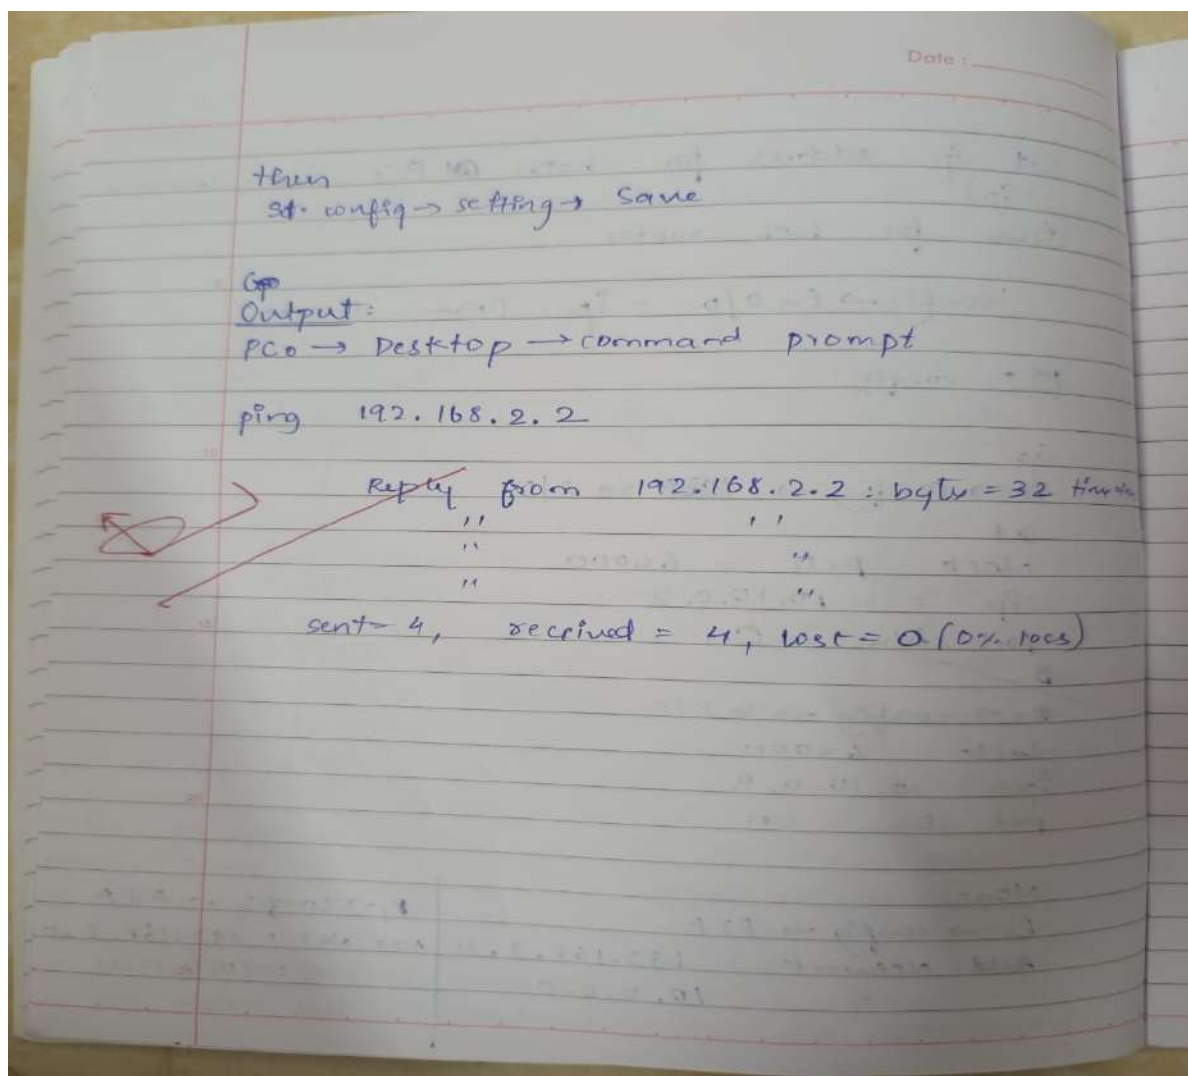 Date :
then
st. config → setting → Save
Output :
PC0 → Desktop → command prompt
ping 192.168.2.2
Reply from 192.168.2.2 : byte = 32
,, ,,
,, ,,
,, ,,
sent = 4, received = 4, lost = 0 (0% loss)